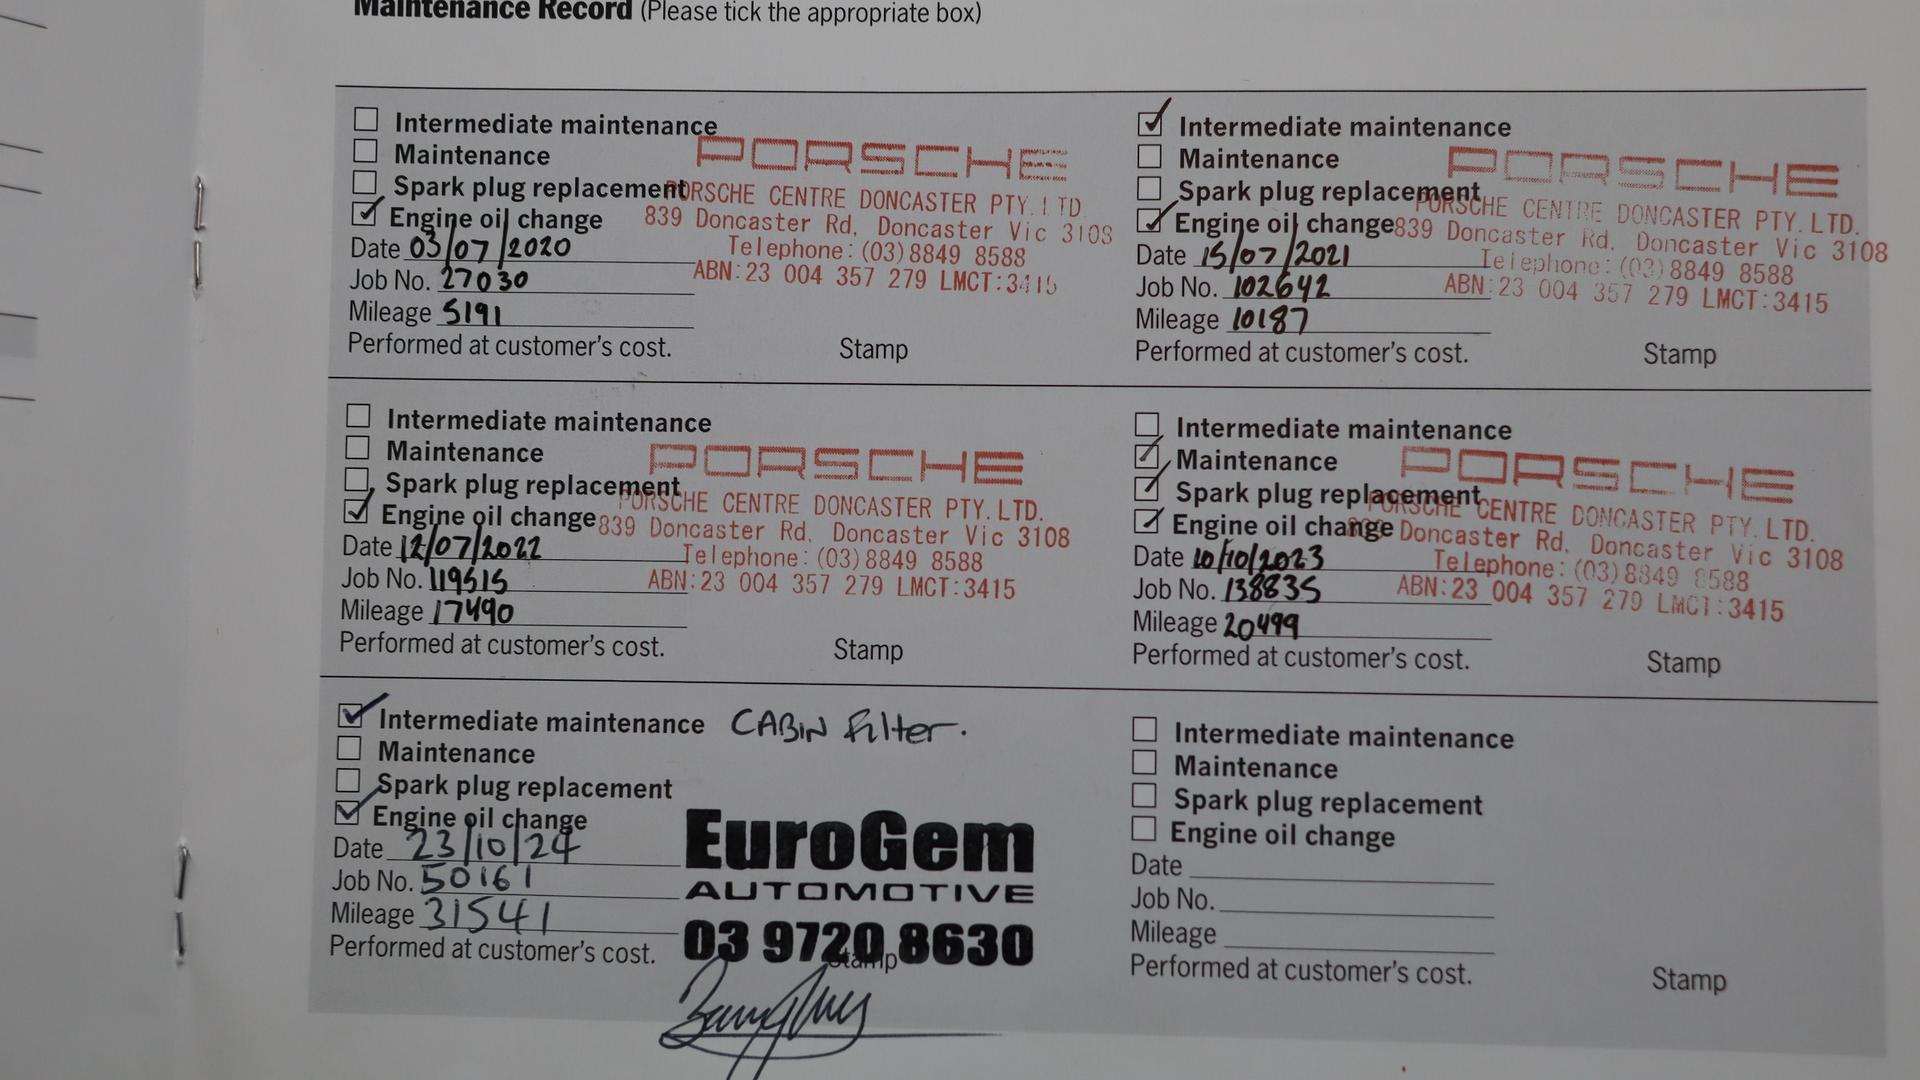 Maintenance Record (Please tick the appropriate box)
Intermediate maintenance
Maintenance
Spark plug replacement
Engine oil change
Date 03/07/2020
Job No. 27030
Mileage 5191
Performed at customer's cost.
PORSCHE
PORSCHE CENTRE DONCASTER PTY. LTD.
839 Doncaster Rd, Doncaster Vic 3108
Telephone: (03) 8849 8588
ABN: 23 004 357 279 LMCT: 3415
Stamp
Intermediate maintenance
Maintenance
Spark plug replacement
Engine oil change
Date 15/07/2021
Job No. 102642
Mileage 10187
Performed at customer's cost.
PORSCHE
PORSCHE CENTRE DONCASTER PTY. LTD.
839 Doncaster Rd, Doncaster Vic 3108
Telephone: (03) 8849 8588
ABN: 23 004 357 279 LMCT: 3415
Stamp
Intermediate maintenance
Maintenance
Spark plug replacement
Engine oil change
Date 12/07/2022
Job No. 119515
Mileage 17490
Performed at customer's cost.
PORSCHE
PORSCHE CENTRE DONCASTER PTY. LTD.
839 Doncaster Rd, Doncaster Vic 3108
Telephone: (03) 8849 8588
ABN: 23 004 357 279 LMCT: 3415
Stamp
Intermediate maintenance
Maintenance
Spark plug replacement
Engine oil change
Date 10/10/2023
Job No. 138835
Mileage 20499
Performed at customer's cost.
PORSCHE
PORSCHE CENTRE DONCASTER PTY. LTD.
839 Doncaster Rd, Doncaster Vic 3108
Telephone: (03) 8849 8588
ABN: 23 004 357 279 LMCT: 3415
Stamp
Intermediate maintenance CABIN Filter.
Maintenance
Spark plug replacement
Engine oil change
Date 23/10/24
Job No. 50161
Mileage 31541
Performed at customer's cost.
EuroGem
AUTOMOTIVE
03 9720 8630
Stamp
Intermediate maintenance
Maintenance
Spark plug replacement
Engine oil change
Date
Job No.
Mileage
Performed at customer's cost.
Stamp